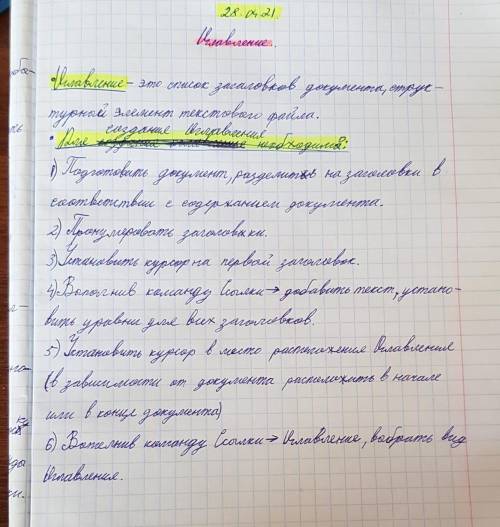 28.04.21.
Оглавление.
Оглавление – это список заголовков документа, струк-
турный элемент текстового файла.
создания Оглавления
Для необходимо:
1) Подготовить документ, разделить на заголовки в
соответствии с содержанием документа.
2) Пронумеровать заголовки.
3) Установить курсор на первой заголовок.
4) Выполнив команду Ссылки → добавить текст, устано-
вить уровни для всех заголовков.
5) Установить курсор в место расположения Оглавления
(в зависимости от документа расположить в начале
или в конце документа)
6) Выполнив команду Ссылки → Оглавление, выбрать вид
Оглавления.